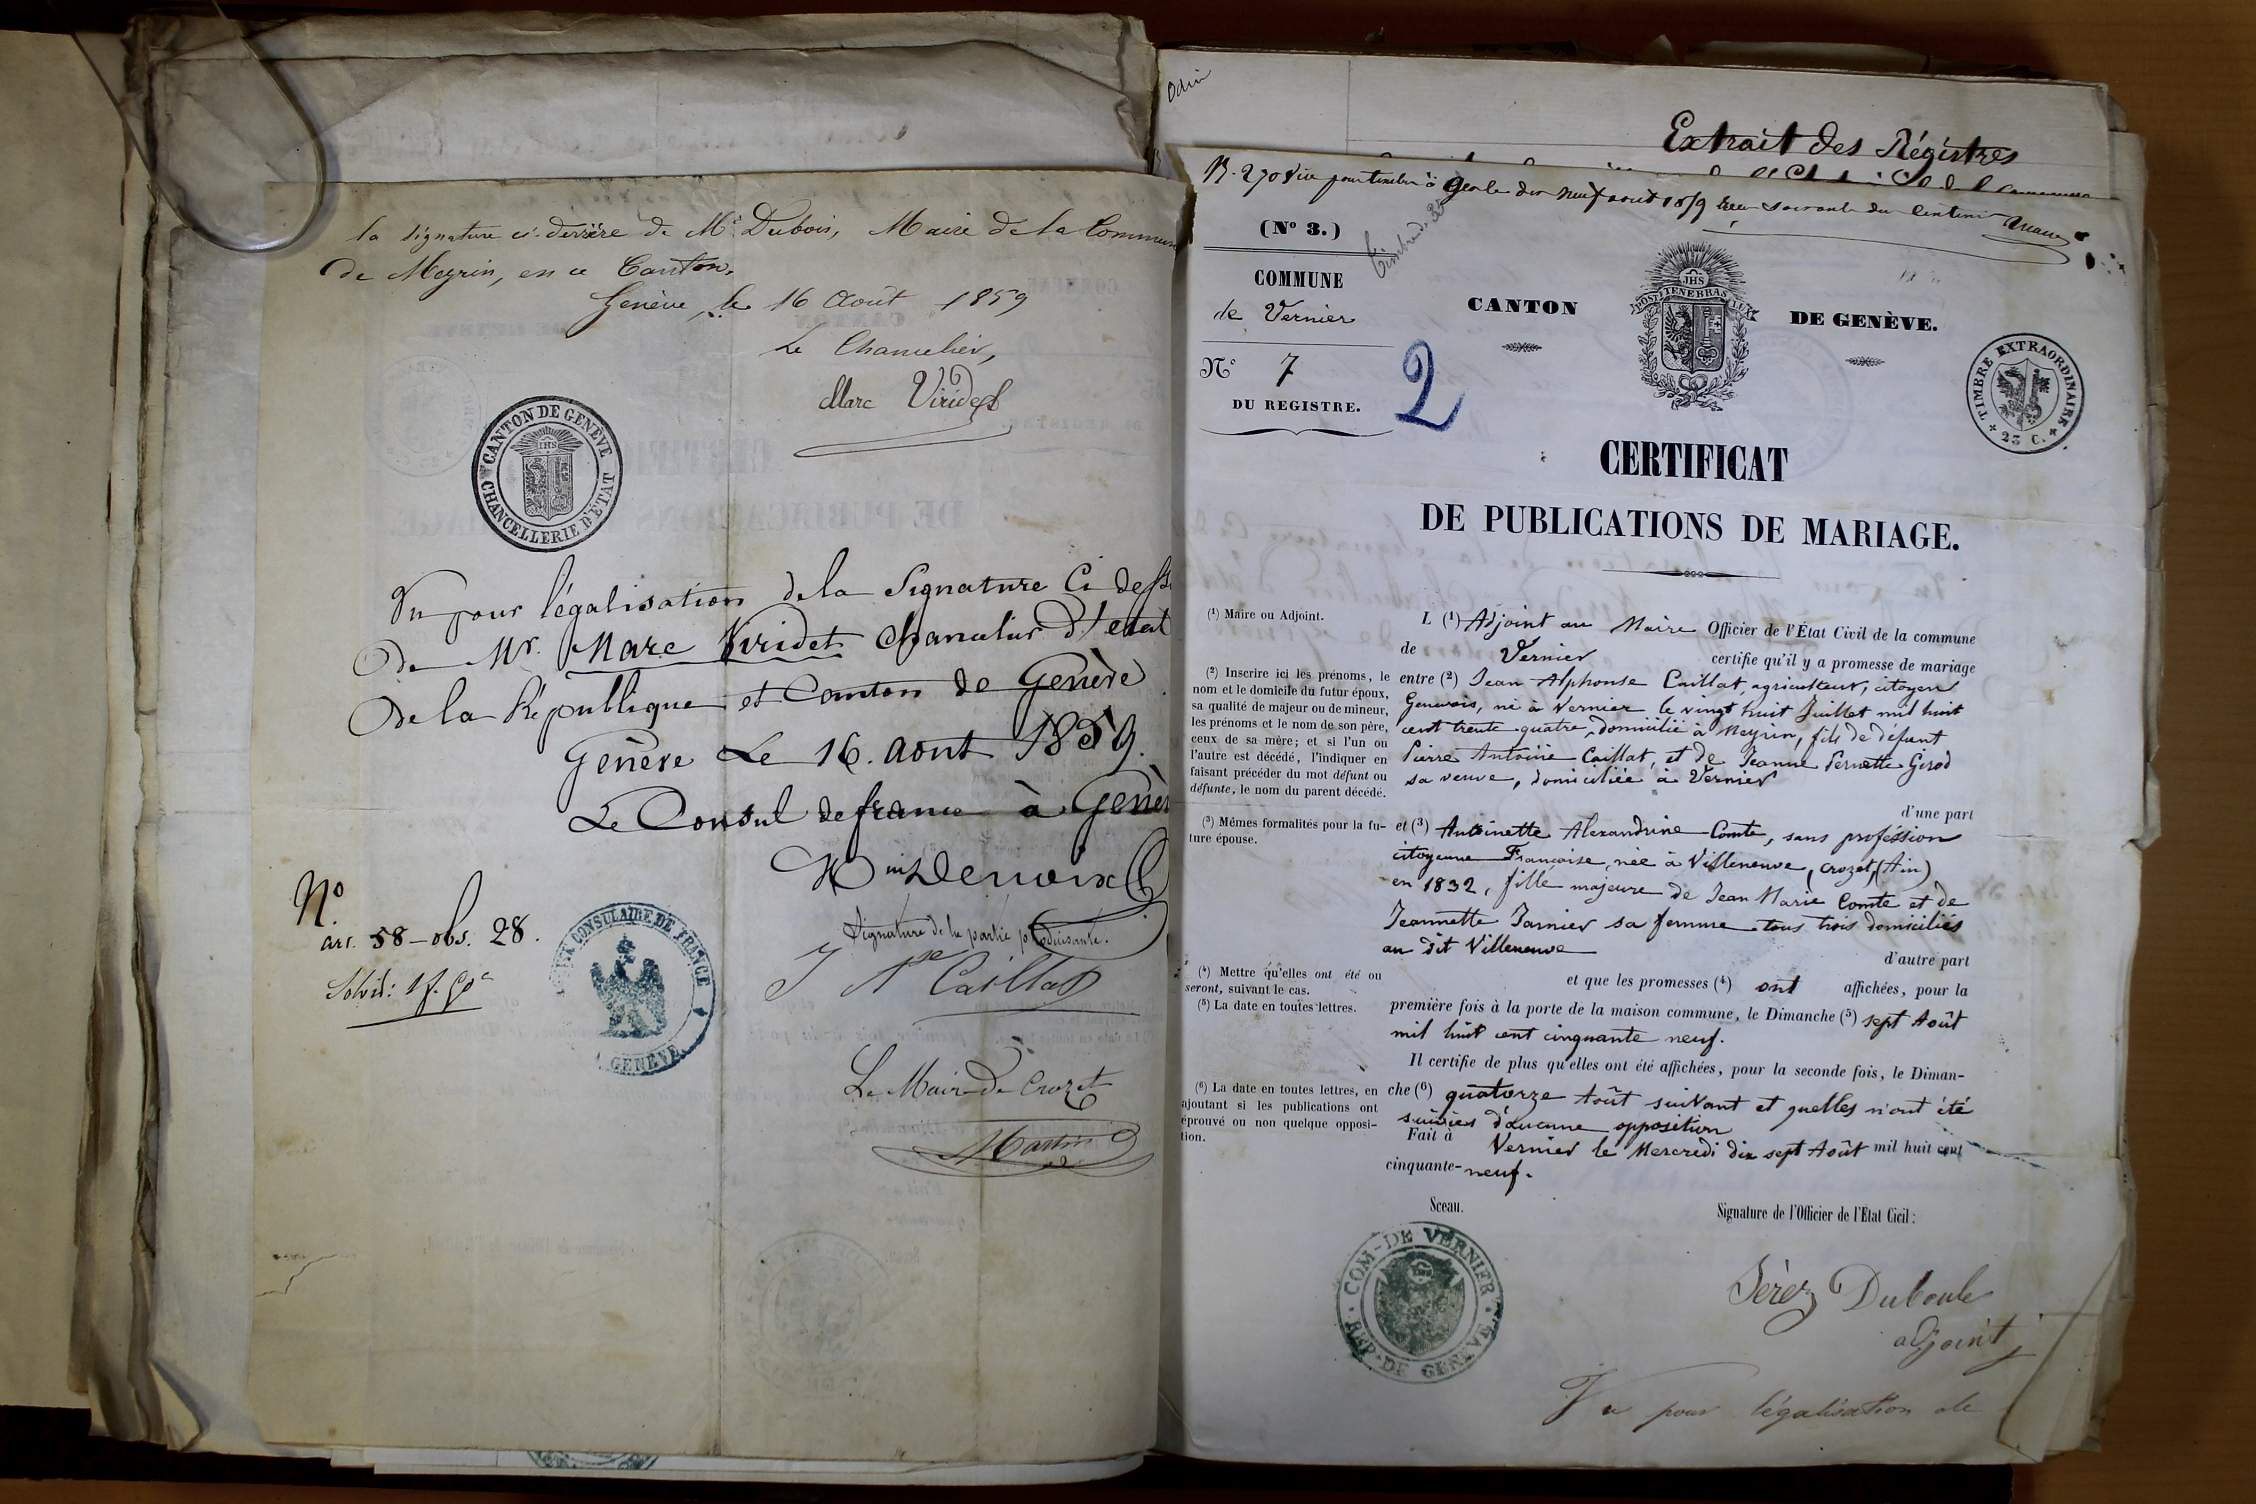 la signature ci-derrière de Mr Dubois, Maire de la Commune
de Meyrin, en ce Canton.
Genève, le 16 Août 1859
Le Chancelier,
Marc Viridet
CANTON DE GENÈVE
CHANCELLERIE D'ÉTAT
Vu pour légalisation de la Signature Ci dessus
De Mr. Marc Viridet chancelier d'état
De la République et Canton de Genève
Genève Le 16. aout 1859.
Le Consul de france à Genè
Signature de la partie produisante.
J Caillat
No
art. 58 - obs. 28.
CONSULAIRE DE FRANCE
GENÈVE
Le Maire de Crozet
Martin
Odin
Extrait des Régistres
(No 3.)
COMMUNE
de Vernier
No 7
DU REGISTRE.
2
CANTON DE GENÈVE.
JHS
POST TENEBRAS LUX
TIMBRE EXTRAORDINAIRE
25 C.
CERTIFICAT
DE PUBLICATIONS DE MARIAGE.
(1) Maire ou Adjoint.
L (1) Adjoint au Maire Officier de l'État Civil de la commune
de Vernier certifie qu'il y a promesse de mariage
(2) Inscrire ici les prénoms, le
nom et le domicile du futur époux,
sa qualité de majeur ou de mineur,
les prénoms et le nom de son père,
ceux de sa mère; et si l'un ou
l'autre est décédé, l'indiquer en
faisant précéder du mot défunt ou
défunte, le nom du parent décédé.
entre (2) Jean Alphonse Caillat, agriculteur, citoyen
Genevois, né à Vernier le vingt huit Juillet mil huit
cent trente quatre, domicilié à Meyrin, fils de défunt
Pierre Antoine Caillat, et de Jeanne Pernette Girod
sa veuve, domiciliée à Vernier
d'une part
(3) Mêmes formalités pour la fu-
ture épouse.
et (3) Antoinette Alexandrine Comte, sans proféssion
citoyenne Française, née à Villeneuve, Crozet, (Ain)
en 1832, fille majeure de Jean Marie Comte et de
Jeannette Jannier sa femme tous trois domiciliés
au dit Villeneuve
d'autre part
(4) Mettre qu'elles ont été ou
seront, suivant le cas.
(5) La date en toutes lettres.
et que les promesses (4) ont affichées, pour la
première fois à la porte de la maison commune, le Dimanche (5) sept Août
mil huit cent cinquante neuf.
Il certifie de plus qu'elles ont été affichées, pour la seconde fois, le Diman-
(6) La date en toutes lettres, en
ajoutant si les publications ont
éprouvé ou non quelque opposi-
tion.
che (6) quatorze Août suivant et quelles n'ont été
suivies d'aucune opposition
Fait à Vernier le Mercredi dix sept Août mil huit cent
cinquante-neuf.
Sceau.
Signature de l'Officier de l'État Civil:
COM. DE VERNIER
REP. DE GENEVE
Duboule
adjoint
Vu pour légalisation de